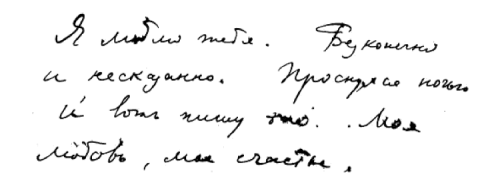 Я люблю тебя. Безконечно
и несказанно. Проснулся ночью
и вотъ пишу это. Моя
любовь, мое счастье.